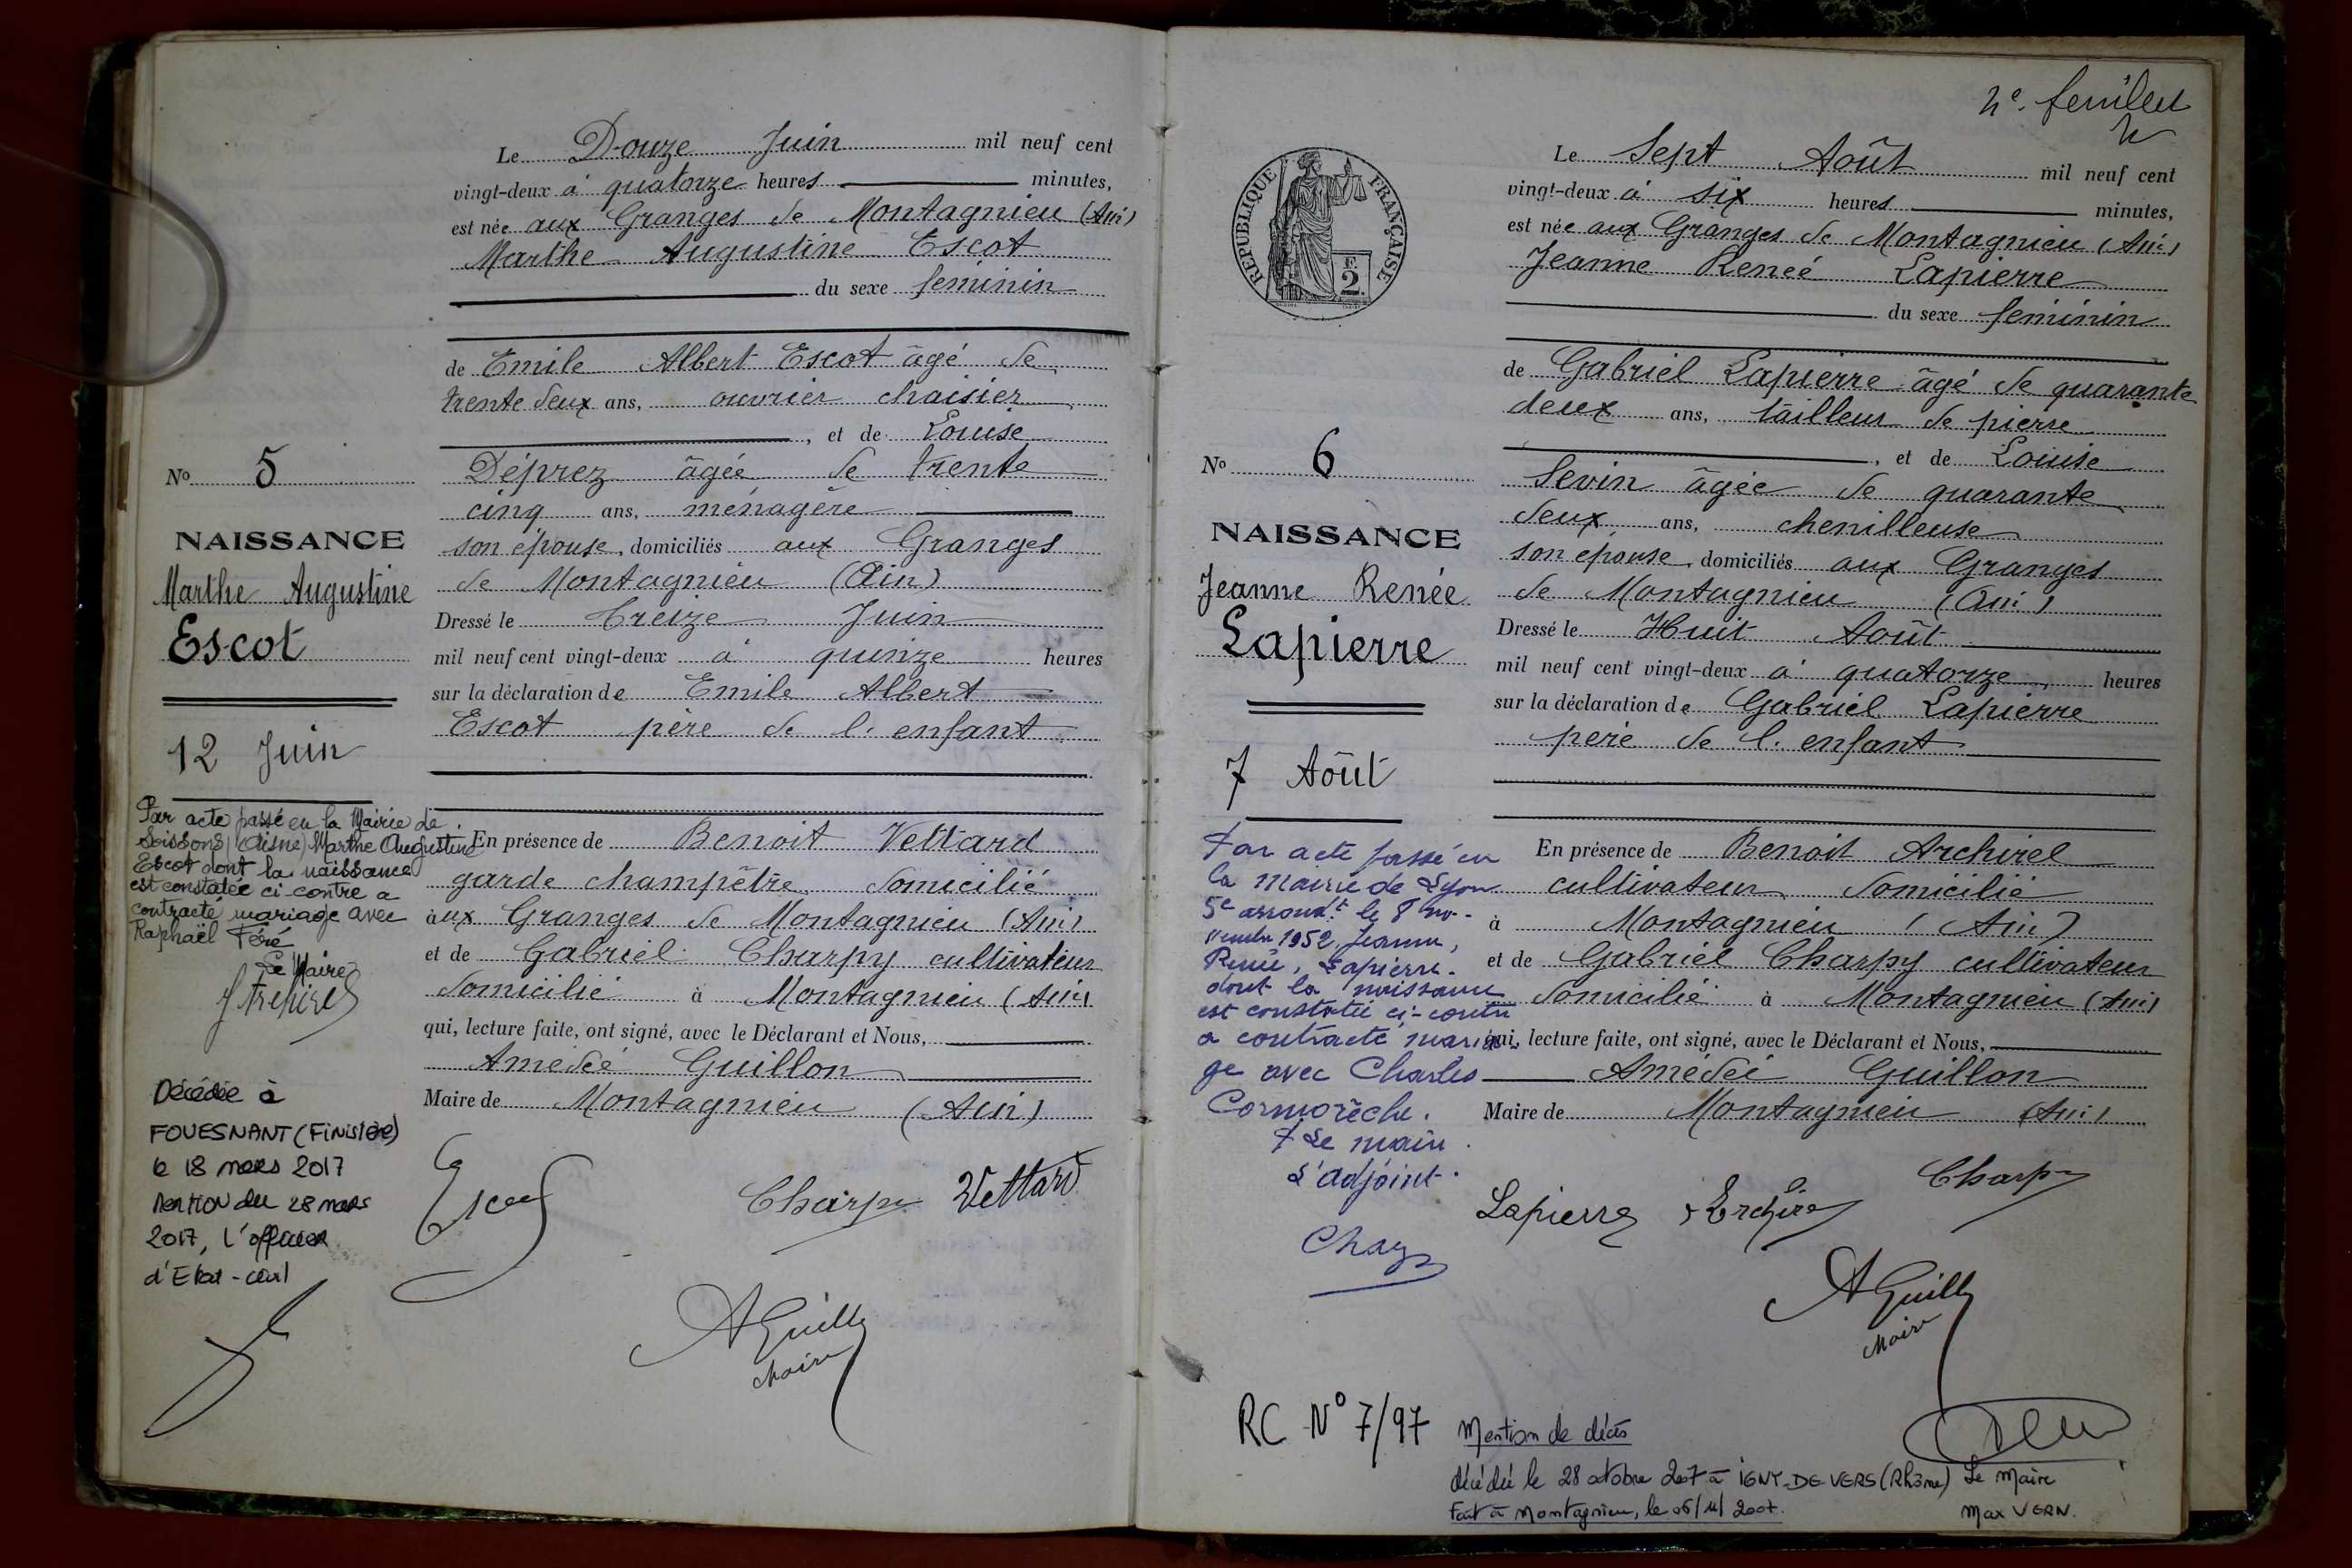 Le Douze Juin mil neuf cent
vingt-deux à quatorze heures minutes,
est née aux Granges de Montagnieu (Ain)
Marthe Augustine Escot
du sexe feminin
de Emile Albert Escot âgé de
trente deux ans, ouvrier chaisier
, et de Louise
Déprez âgée de trente
cinq ans, ménagère
son épouse, domiciliés aux Granges
de Montagnieu (Ain)
Dressé le Treize Juin
mil neuf cent vingt-deux à quinze heures
sur la déclaration de Emile Albert
Escot père de l'enfant
En présence de Benoit Vettard
garde champêtre domicilié
aux Granges de Montagnieu (Ain)
et de Gabriel Charpy cultivateur
domicilié à Montagnieu (Ain)
qui, lecture faite, ont signé, avec le Déclarant et Nous,
Amédée Guillon
Maire de Montagnieu (Ain)
Escot
Charpy Vettard
AGuillon
Maire
No 5
NAISSANCE
Marthe Augustine
Escot
12 Juin
Par acte passé en la Mairie de
Soissons (Aisne) Marthe Augustine
Escot dont la naissance
est constatée ci-contre a
contracté mariage avec
Raphaël Féré
Le Maire
Décédée à
FOUESNANT (Finistère)
le 18 mars 2017
Mention du 28 mars
2017, L'officier
d'Etat-civil
2e feuillet
RÉPUBLIQUE FRANÇAISE
F.
2.
Le Sept Août mil neuf cent
vingt-deux à six heures minutes,
est née aux Granges de Montagnieu (Ain)
Jeanne Reneé Lapierre
du sexe feminin
de Gabriel Lapierre âgé de quarante
deux ans, tailleur de pierre
, et de Louise
Sevin âgée de quarante
deux ans, chenilleuse
son épouse, domiciliés aux Granges
de Montagnieu (Ain)
Dressé le Huit Août
mil neuf cent vingt-deux à quatorze heures
sur la déclaration de Gabriel Lapierre
père de l'enfant
En présence de Benoit Archirel
cultivateur domicilié
à Montagnieu (Ain)
et de Gabriel Charpy cultivateur
domicilié à Montagnieu (Ain)
qui, lecture faite, ont signé, avec le Déclarant et Nous,
Amédée Guillon
Maire de Montagnieu (Ain)
Lapierre Archirel Charpy
AGuillon
Maire
No 6
NAISSANCE
Jeanne Renée
Lapierre
7 Août
Par acte passé en
la mairie de Lyon
5e arrondt le 8 no-
vembre 1952, Jeanne,
Renée, Lapierre
dont la naissance
est constatée ci-contre
a contracté maria-
ge avec Charles
Cormorèche.
Le maire
L'adjoint.
RC N° 7/97
Mention de décès
décédée le 28 octobre 2007 à IGNY-DE VERS (Rhône) Le Maire
Fait à Montagnieu, le 06/11/2007. Max VERN.